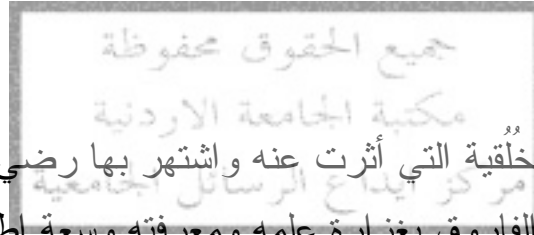 جميع الحقوق محفوظة
مكتبة الجامعة الاردنية
خُلُقية التي أثرت عنه واشتهر بها رضي
مركز ايداع الرسائل الجامعية
الفاروق بغزارة علمه ومعرفته وسعة